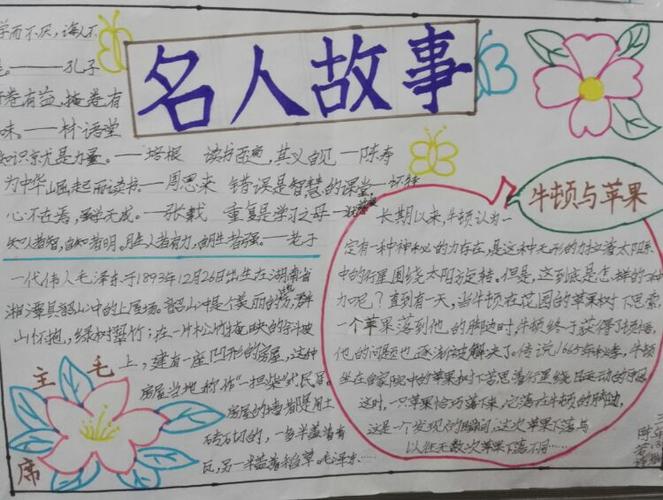 学而不厌，诲人不
——孔子
开卷有益，掩卷有
味。——林语堂
知识就是力量。——培根 读书百遍，其义自见——陈寿
为中华崛起而读书——周恩来 错误是智慧的课堂
心不在焉，学无成。——张载 重复是学习之母——
知人者智，自知者明。胜人者有力，自胜者强。——老子
名人故事
一代伟人毛泽东于1893年12月26日出生在湖南省
湘潭县韶山冲的上屋场。韶山冲是个美丽的 群
山怀抱，绿树翠竹；在一片松竹掩映的
上，建有一座凹形的房屋，这种
房屋当地称作"一担柴"式民居。
房屋的墙都是用土
砖砌的，一半盖着青
瓦，另一半盖着稻草。毛泽东……
毛主席
牛顿与苹果
长期以来，牛顿认为一
定有一种神秘的力存在，是这种无形的力拉着太阳系
中的行星围绕太阳旋转。但是，这到底是怎样的一种
力呢？直到有一天，当牛顿在花园的苹果树下思索
一个苹果落到他的脚边时，牛顿终于获得了顿悟，
他的问题也逐渐被解决了。传说1665年秋季，牛顿
坐在自家院中的苹果树下苦思着行星绕日运动的原因
这时，一只苹果恰巧落下来，它落在牛顿的脚边，
这是一个发现的瞬间，这次苹果下落与
以往无数次苹果下落不同……